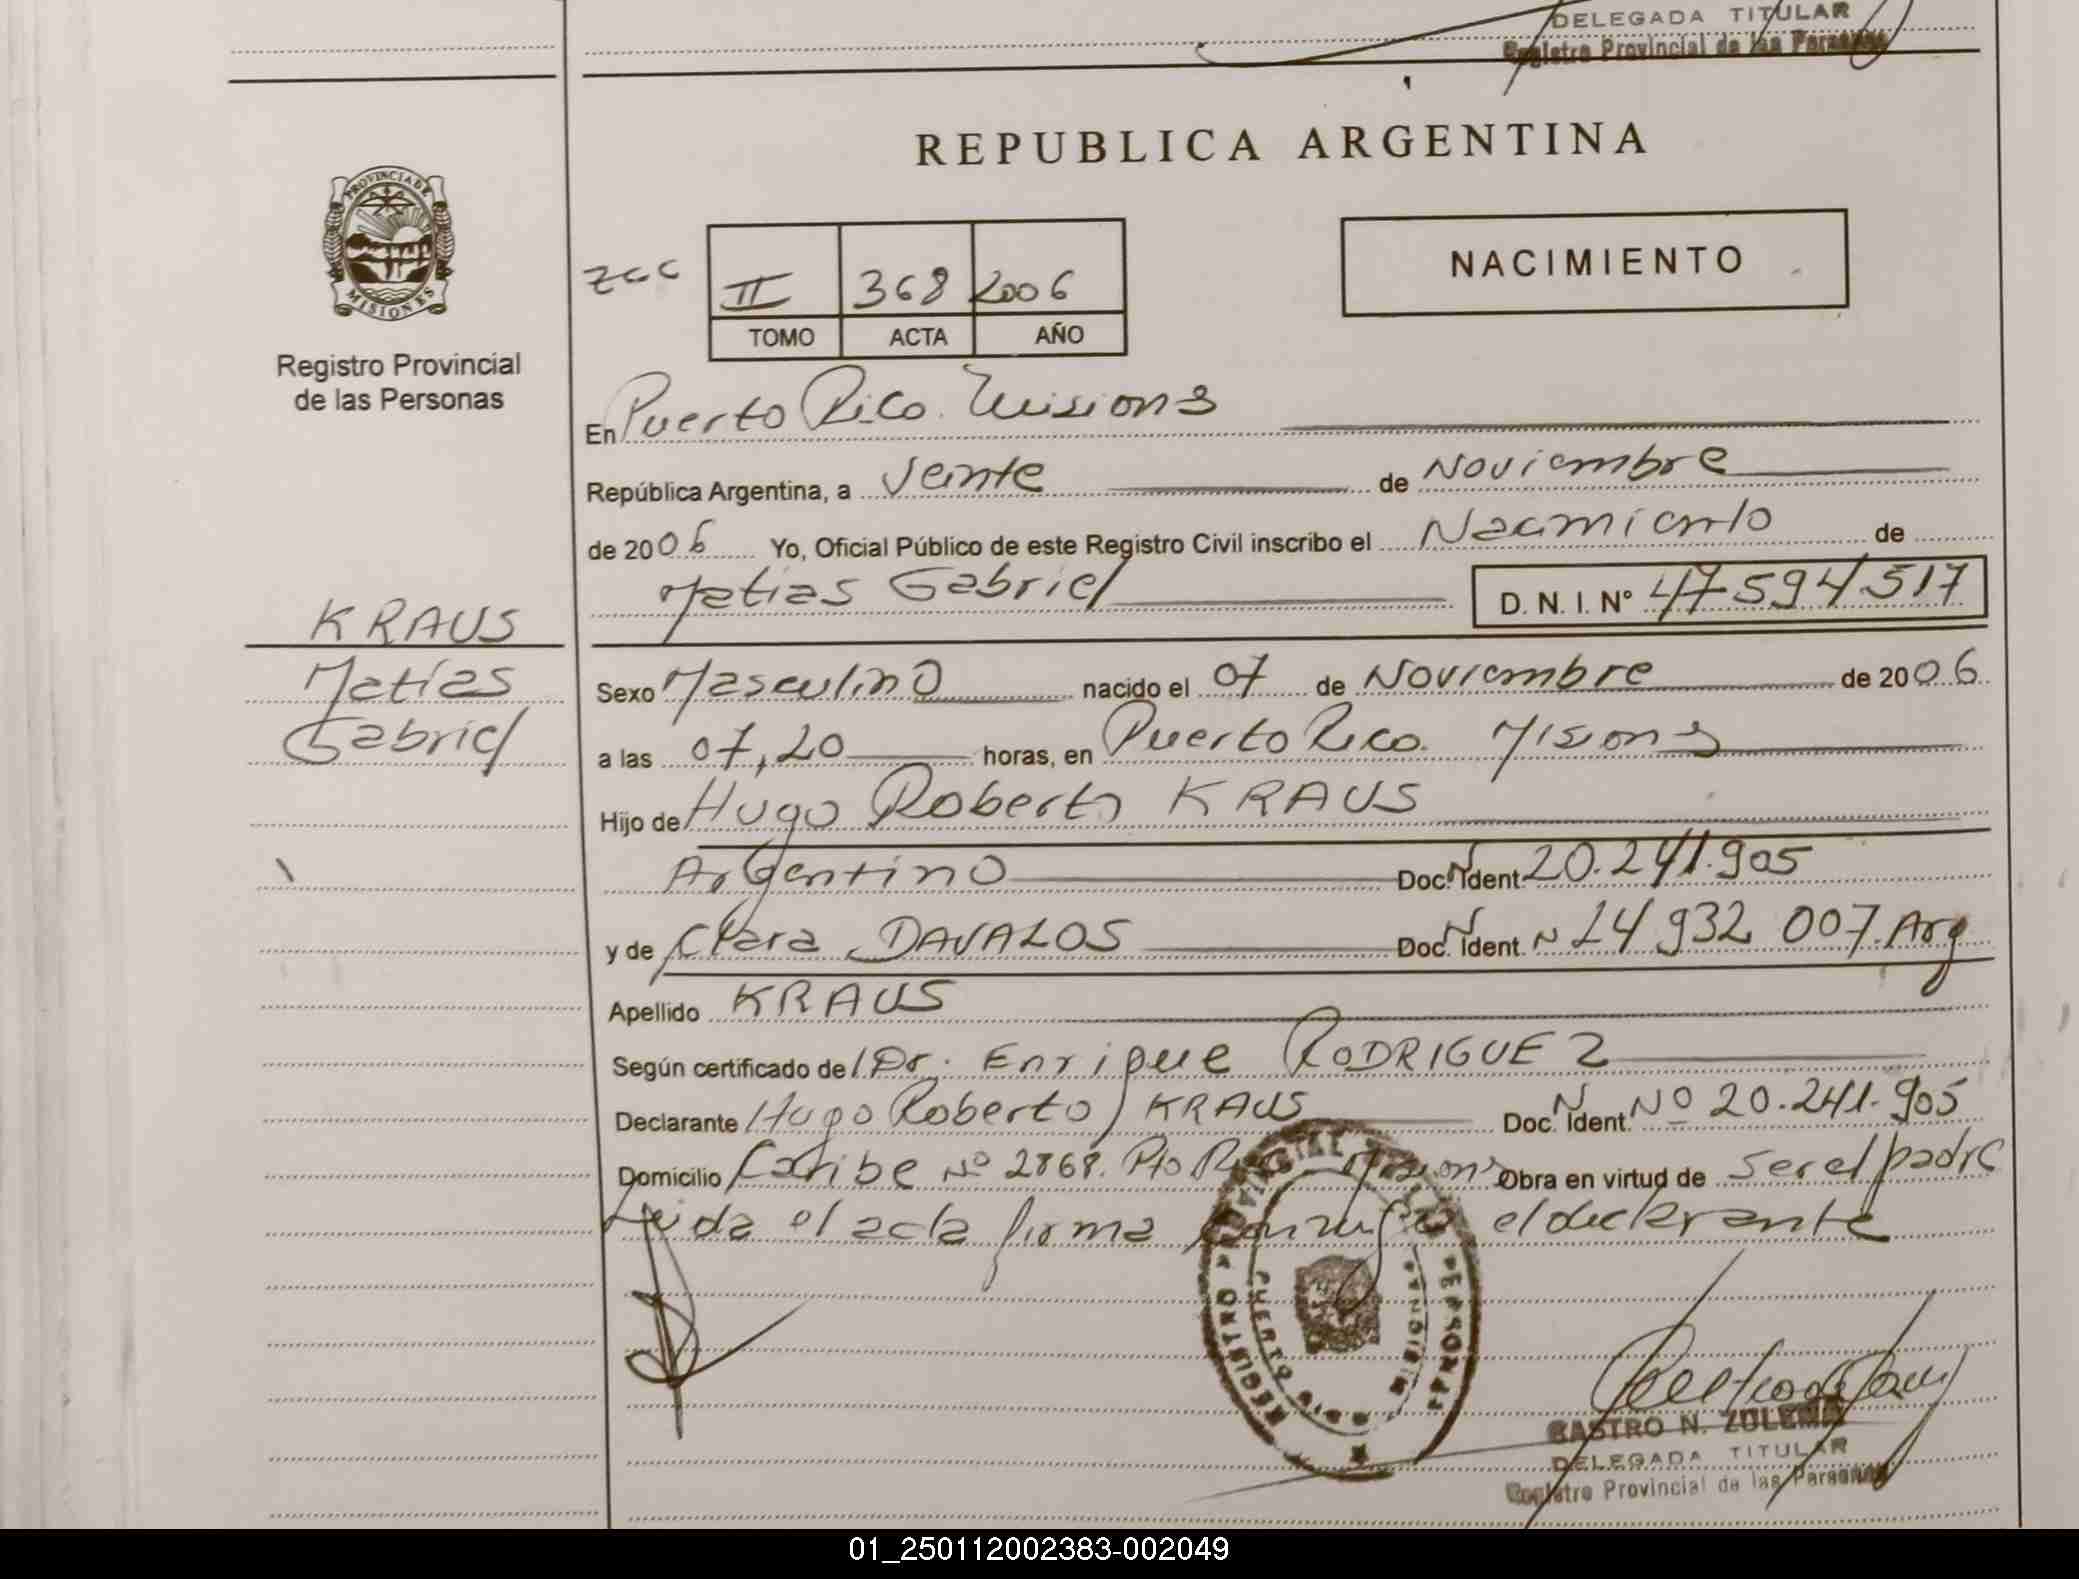 DELEGADA TITULAR
Registro Provincial de las Personas
REPUBLICA ARGENTINA
PROVINCIA DE
MISIONES
Registro Provincial
de las Personas
NACIMIENTO
II 368 2006
TOMO ACTA AÑO
En Puerto Rico. Misiones
República Argentina, a Veinte de Noviembre
de 2006 Yo, Oficial Público de este Registro Civil inscribo el Nacimiento de
Matias Gabriel D. N. I. N° 47 594 517
KRAUS
Matías
Gabriel
Sexo Masculino nacido el 07 de Noviembre de 2006
a las 07,20 horas, en Puerto Rico. Misiones
Hijo de Hugo Roberto KRAUS
Argentino Doc. N. Ident. 20.241.905
y de Clara DAVALOS Doc. N. Ident. N 14 932 007. Arg
Apellido KRAUS
Según certificado del Dr. Enrique RODRIGUEZ
Declarante Hugo Roberto KRAUS Doc. N. Ident. Nº 20.241.905
Domicilio Caribe Nº 2868. Pto Rico - Misiones Obra en virtud de ser el padre
Leida el acta firma conmigo el declarante
REGISTRO PROVINCIAL PERSONAS
PUERTO RICO
CASTRO N. ZULEMA
DELEGADA TITULAR
Registro Provincial de las Personas
01_250112002383-002049